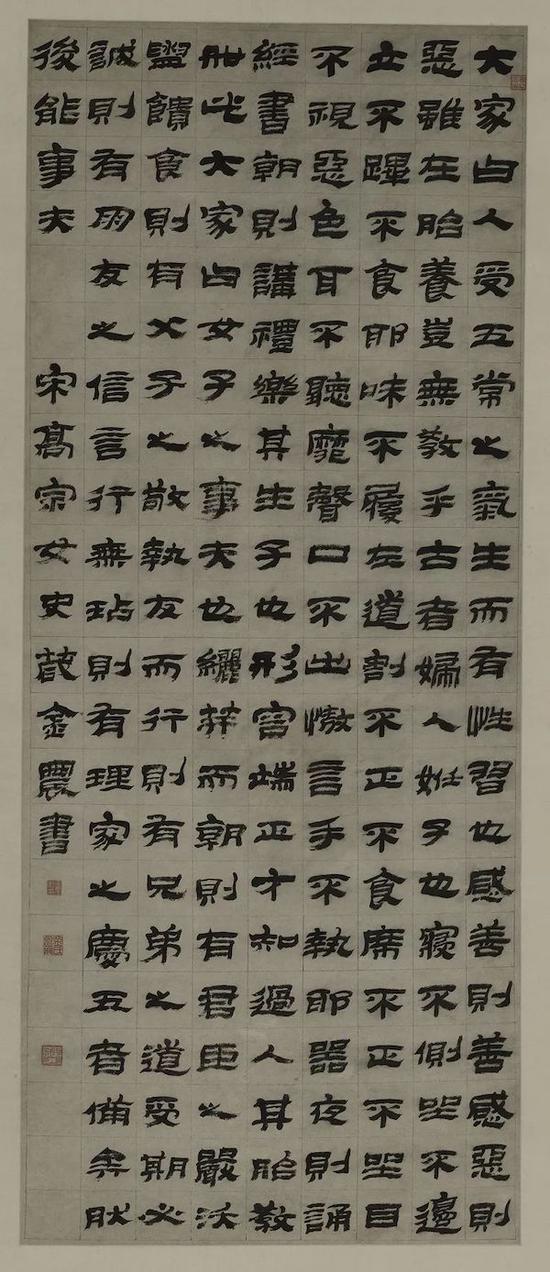 大家曰人受五常之氣生而有性習也感善則善感惡則
惡雖在胎養豈無教乎古者婦人妊子也寢不側坐不邊
立不蹕不食耶味不履左道割不正不食席不正不坐目
不視惡色耳不聽靡聲口不出慠言手不執耶器夜則誦
經書朝則講禮樂其生子也形容端正才知過人其胎教
如此大家曰女子之事夫也纚笄而朝則有君臣之嚴沃
盥饋食則有父子之敬執友而行則有兄弟之道受期必
誠則有朋友之信言行無玷則有理家之慶五者備矣然
後能事夫 宋髙宗女史箴金農書